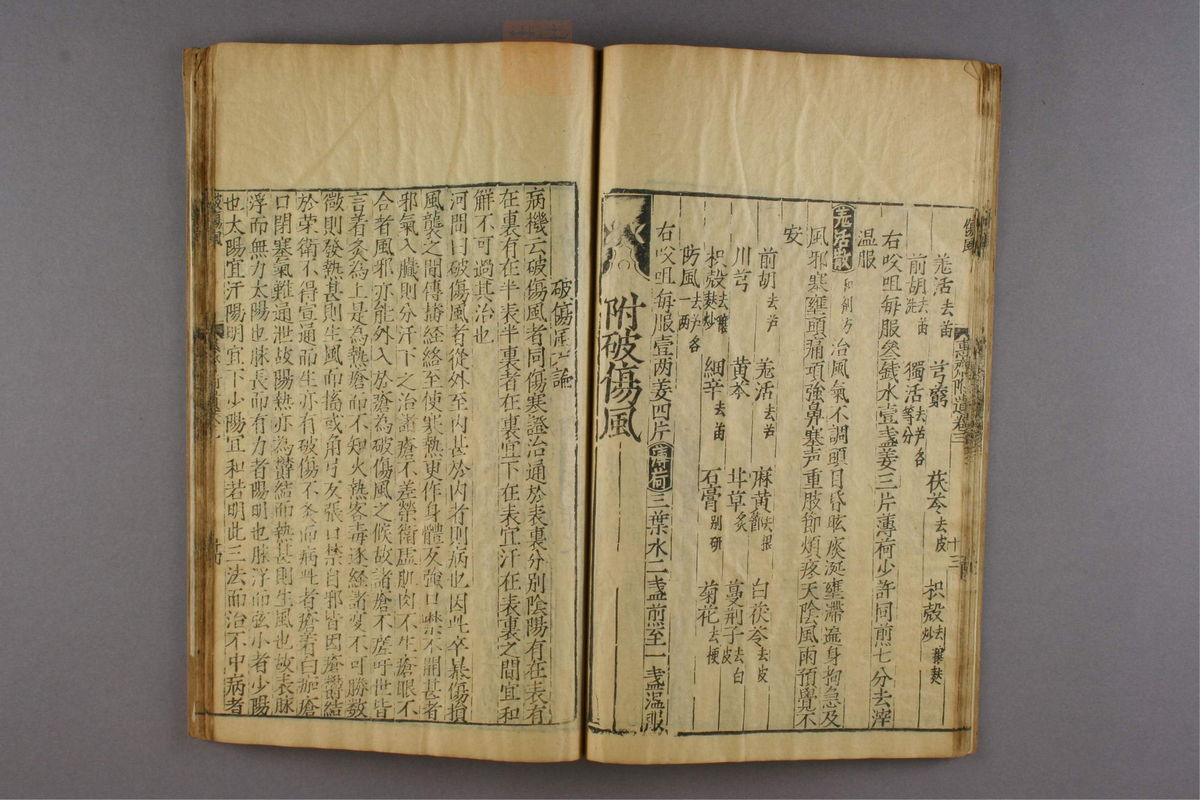 羗活去苗 芎藭 茯苓去皮 枳殼去穰麩炒
前胡去苗洗 獨活去芦各等分
右㕮咀每服叁錢水壹盞姜三片薄荷少許同煎七分去滓
温服
羗活散 和剤方 治風氣不調頭目昏眩痰涎壅滯遍身拘急及
風邪寒壅頭痛項強鼻塞声重肢節煩疼天陰風雨預覺不
安
前胡去芦 羗活去芦 麻黄去根節 白茯苓去皮
川芎 黄芩 甘草炙 蔓荆子去白皮
枳殼去穰麩炒 細辛去苗 石膏别研 菊花去梗
防風去芦各一两
右㕮咀每服壹两姜四片薄荷三葉水二盞煎至一盞温服
附破傷風
破傷風論
病機云破傷風者同傷寒證治通於表裏分别陰陽有在表有
在裏有在半表半裏者在裏宜下在表宜汗在表裏之間宜和
解不可過其治也
河間曰破傷風者從外至内甚於内者則病也因此卒暴傷損
風襲之間傳播經絡至使寒熱更作身體反強口噤不開甚者
邪氣入臟則分汗下之治諸瘡不差榮衛虚肌肉不生瘡眼不
合者風邪亦能外入於瘡為破傷風之候故諸瘡不瘥吁世皆
言著灸為上是為熱瘡而不知火熱客毒逐經諸變不可勝數
微則發熱甚則生風而搐或角弓反張口噤目邪皆因瘡鬱結
於荣衛不得宣通而生亦有破傷不灸而病此者瘡著白痂瘡
口閉塞氣難通泄故陽熱亦為鬱結而熱甚則生風也故表脉
浮而無力太陽也脉長而有力者陽明也脉浮而弦小者少陽
也太陽宜汗陽明宜下少陽宜和若明此三法而治不中病者